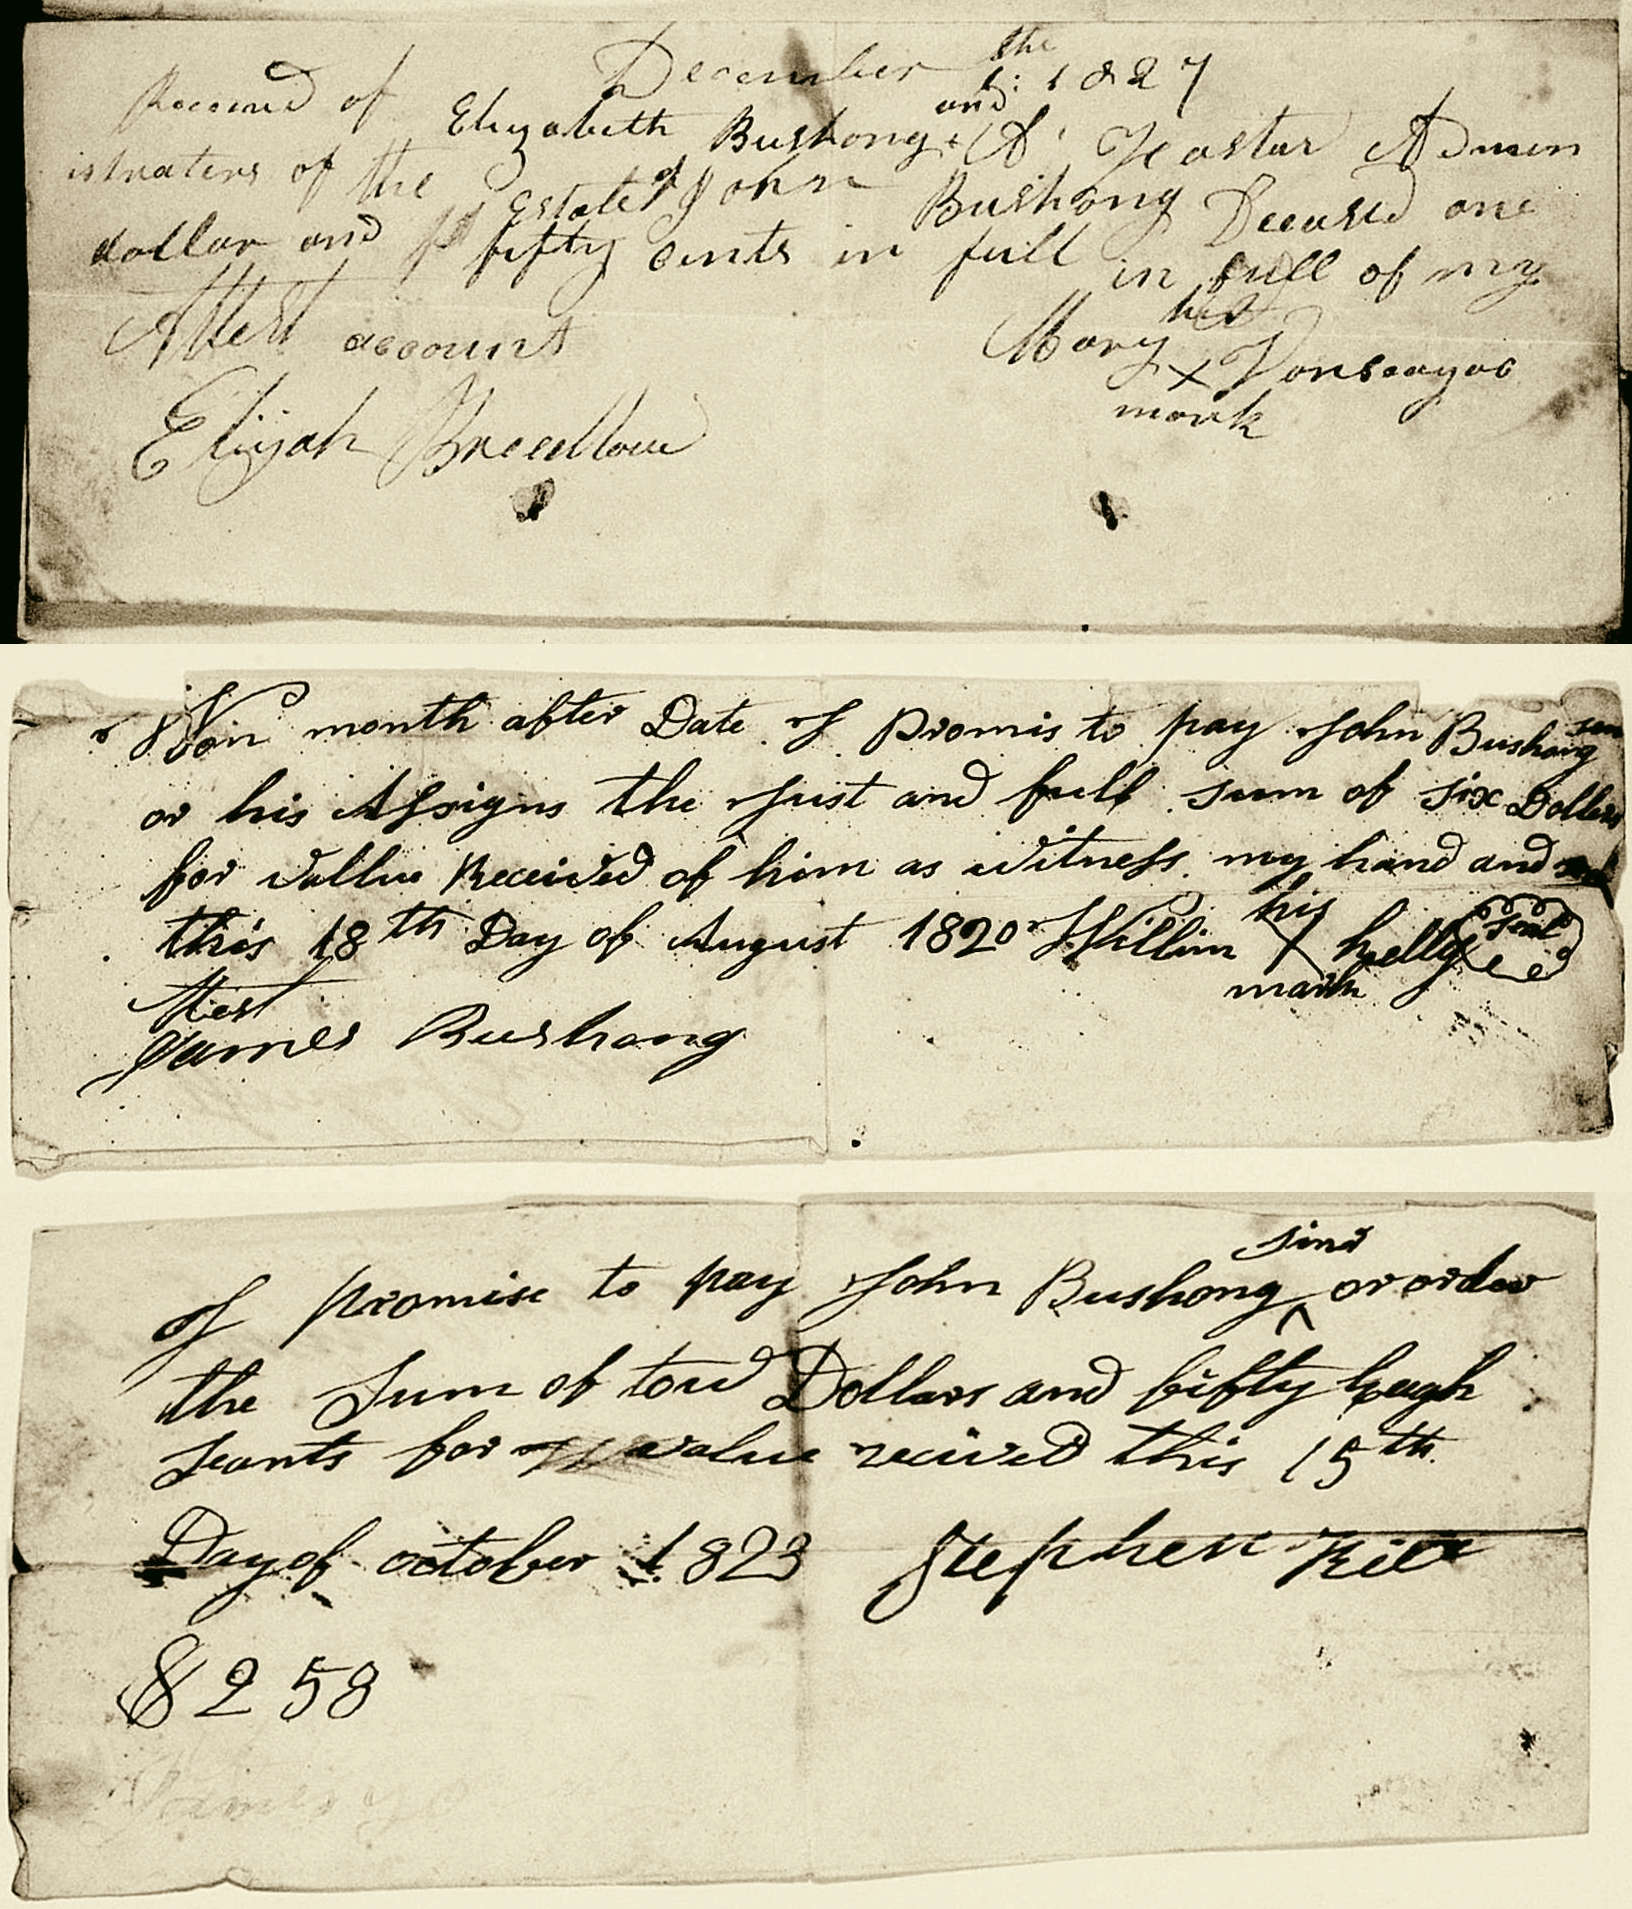 December the 1: 1827
Received of Elizabeth Bushong and A Feastar Admin
istraters of the Estate of John Bushong Deceased one
dollar and fifty cents in full in full of my
Attest account
Mary his x Vonseayoc
mark
Elijah Breedlove
Won month after Date I Promis to pay John Bushong sen
or his Assigns the Just and full sum of six Dollers
for vallue Received of him as witness my hand and seal
this 18th Day of August 1820 Willim his X kelly seal
mark
Test
James Bushong
sinr
I promise to pay John Bushong ^ or order
the Sum of tow Dollars and fifty
seants for value recived this 15th
Day of october 1823 Stephen
$2 58